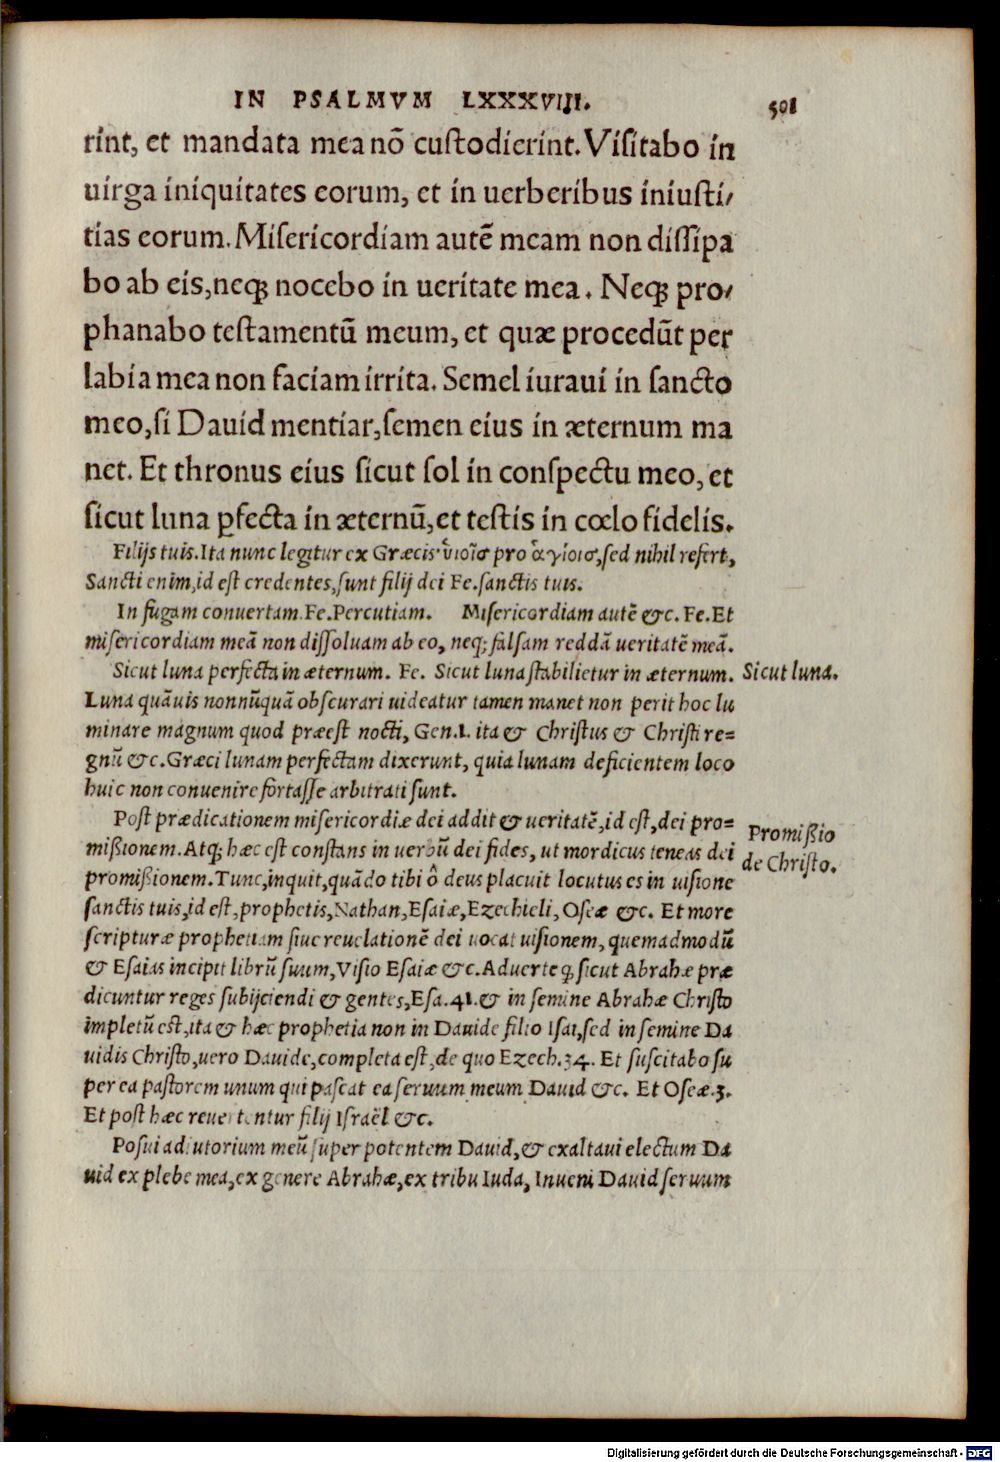 IN PSALMVM LXXXVIII. 501
rint, et mandata mea nõ custodierint. Visitabo in
uirga iniquitates eorum, et in uerberibus iniusti/
tias eorum. Misericordiam autẽ meam non dissipa
bo ab eis, neqꝫ nocebo in ueritate mea. Neqꝫ pro/
phanabo testamentũ meum, et quæ procedũt per
labia mea non faciam irrita. Semel iuraui in sancto
meo, si Dauid mentiar, semen eius in æternum ma
net. Et thronus eius sicut sol in conspectu meo, et
sicut luna ꝑfecta in æternũ, et testis in cœlo fidelis.
Filijs tuis. Ita nunc legitur ex Græcis υἱοῖσ pro ἁγίοισ, sed nihil refert,
Sancti enim, id est credentes, sunt filij dei Fe. sanctis tuis.
In fugam conuertam. Fe. Percutiam. Misericordiam autẽ &c. Fe. Et
misericordiam meã non dissoluam ab eo, neqꝫ falsam reddã ueritatẽ meã.
Sicut luna perfecta in æternum. Fe. Sicut luna stabilietur in æternum.
Sicut luna.
Luna quãuis nonnũquã obscurari uideatur tamen manet non perit hoc lu
minare magnum quod præest nocti, Gen.1. ita & Christus & Christi re=
gnũ &c. Græci lunam perfectam dixerunt, quia lunam deficientem loco
huic non conuenire fortasse arbitrati sunt.
Post prædicationem misericordiæ dei addit & ueritatẽ, id est, dei pro=
Promißio
mißionem. Atqꝫ hæc est constans in uerbũ dei fides, ut mordicus teneas dei
de Christo.
promißionem. Tunc, inquit, quãdo tibi ô deus placuit locutus es in uisione
sanctis tuis, id est, prophetis, Nathan, Esaiæ, Ezechieli, Oseæ &c. Et more
scripturæ prophetiam siue reuelationẽ dei uocat uisionem, quemadmodũ
& Esaias incipit librũ suum, Visio Esaiæ &c. Aduerte ꝙ sicut Abrahæ præ
dicuntur reges subijciendi & gentes, Esa.41. & in semine Abrahæ Christo
impletũ est, ita & hæc prophetia non in Dauide filio Isai, sed in semine Da
uidis Christo, uero Dauide, completa est, de quo Ezech.34. Et suscitabo su
per ea pastorem unum qui pascat ea seruum meum Dauid &c. Et Oseæ.3.
Et post hæc reuertentur filij Israël &c.
Posui adiutorium meũ super potentem Dauid, & exaltaui electum Da
uid ex plebe mea, ex genere Abrahæ, ex tribu Iuda, Inueni Dauid seruum
Digitalisierung gefördert durch die Deutsche Forschungsgemeinschaft - DFG